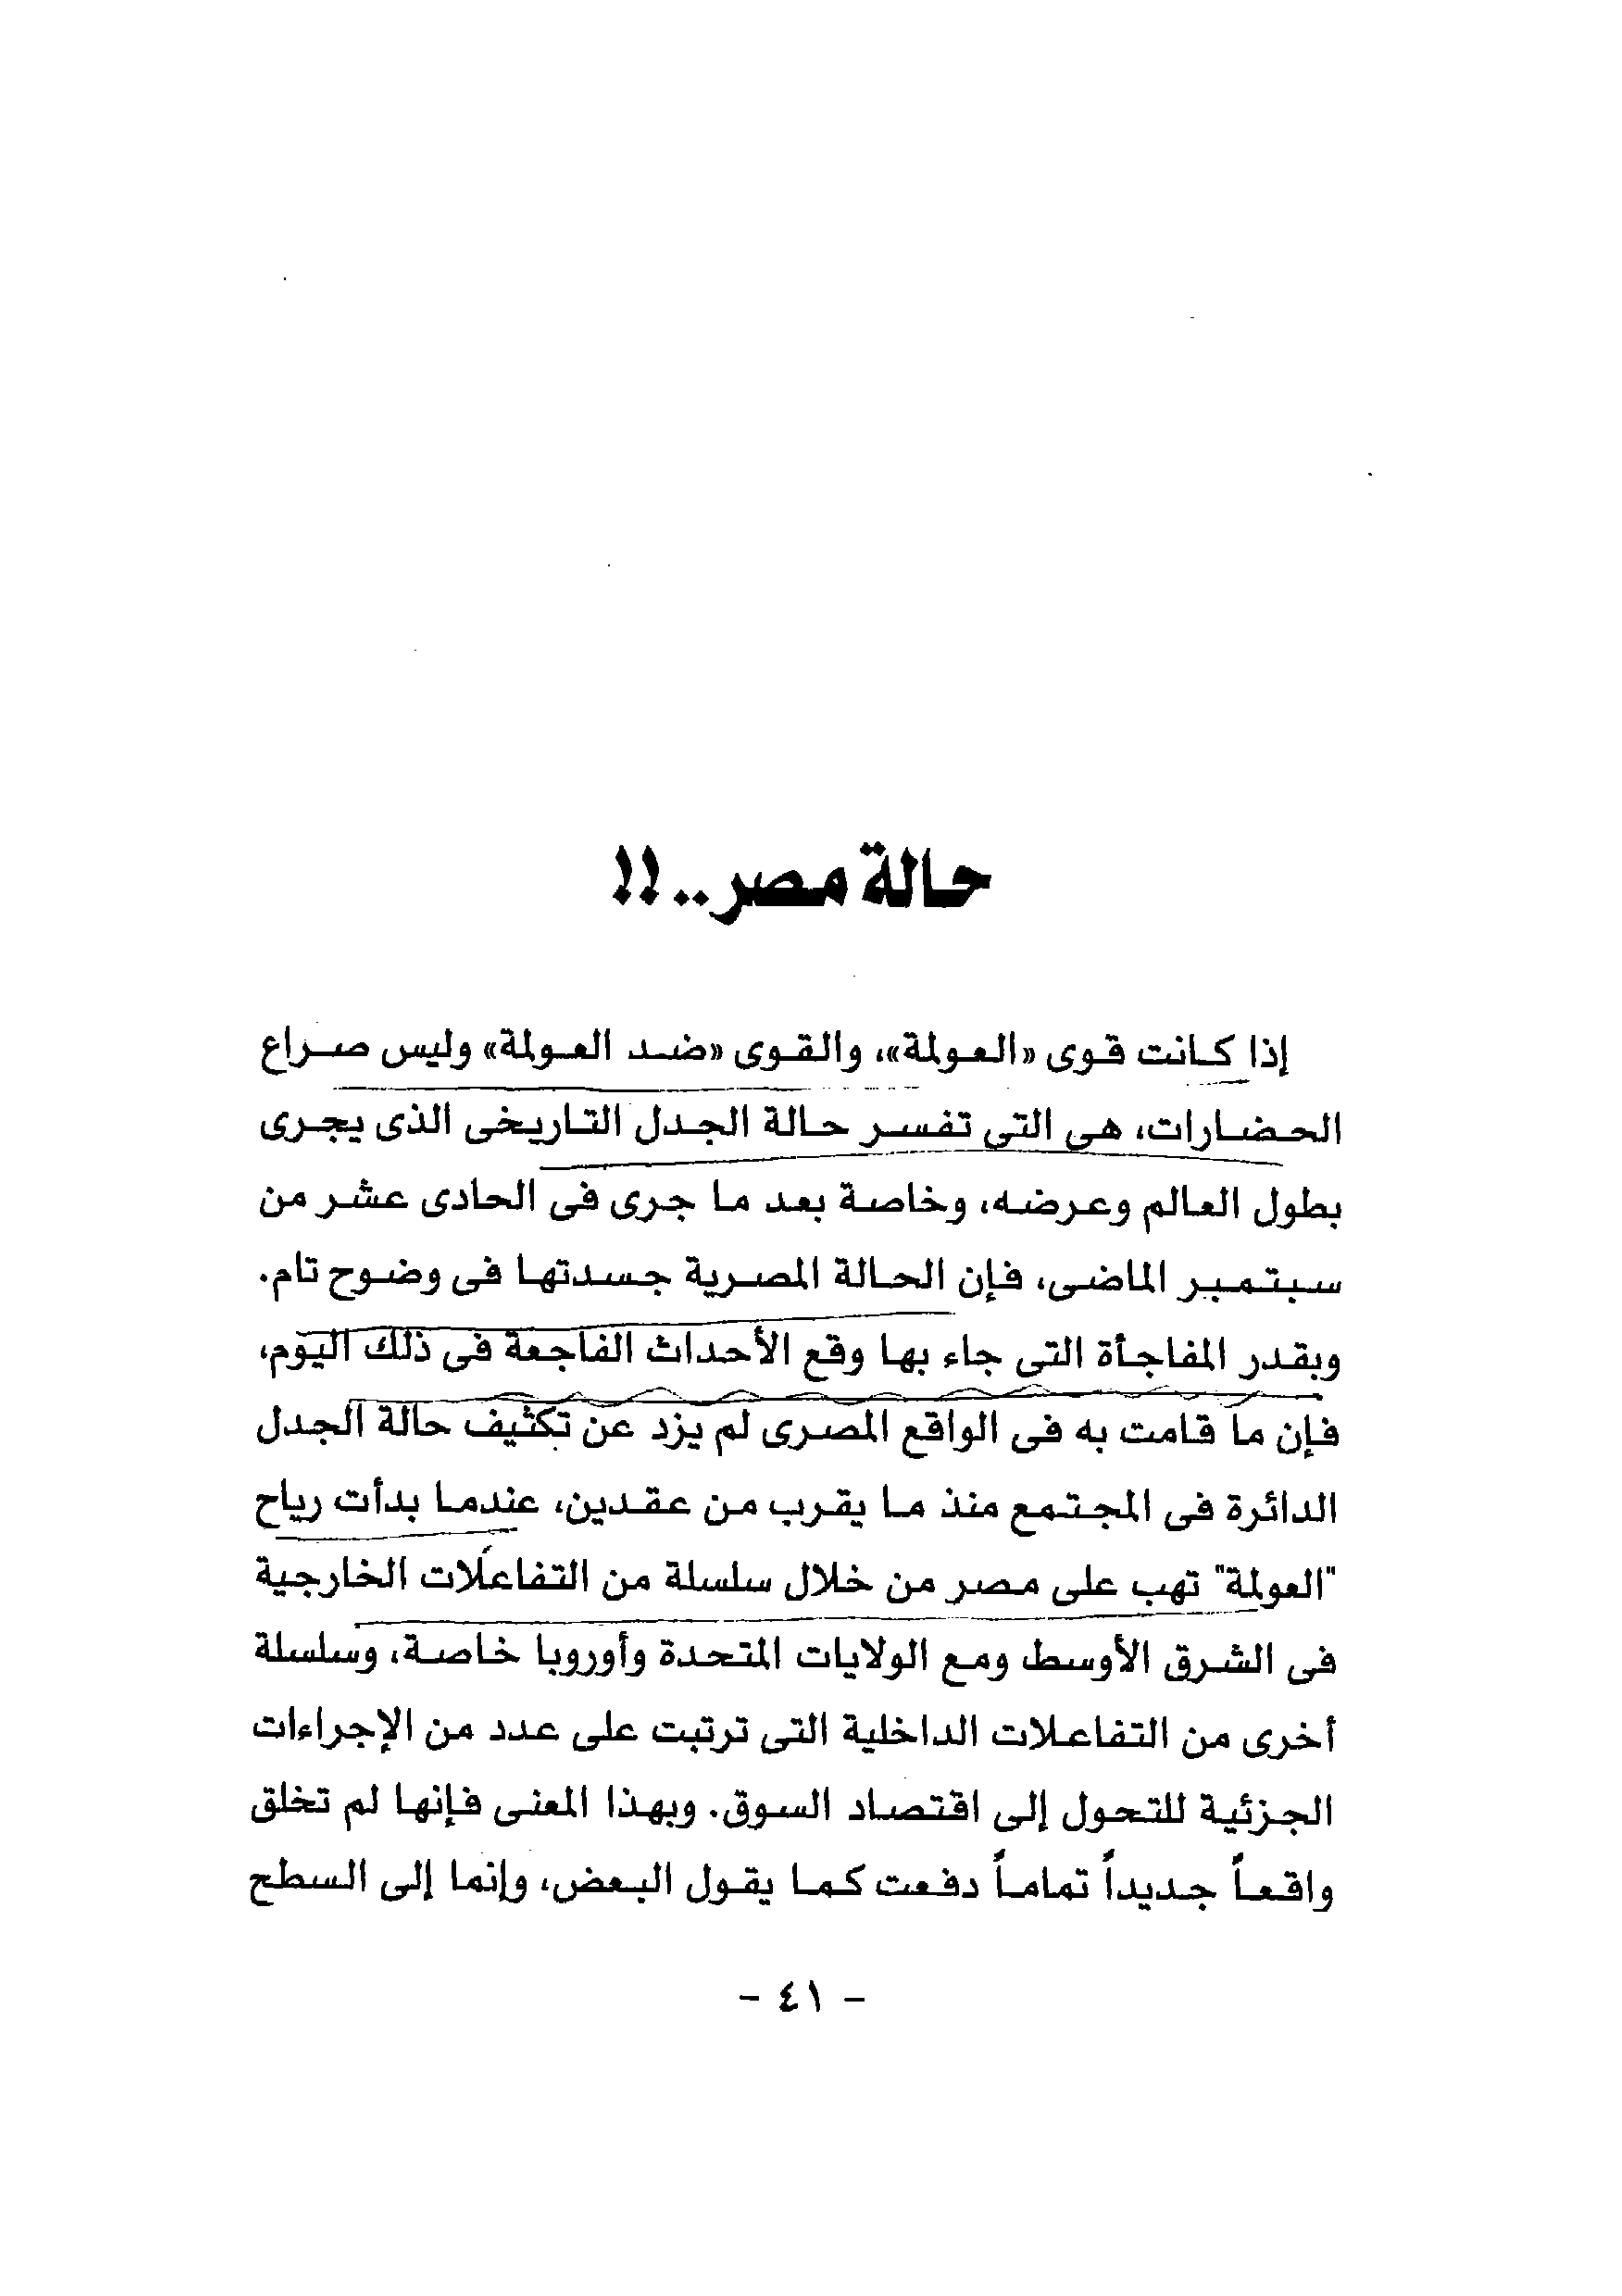 حالة مصر..!!
إذا كانت قوى «العولمة»، والقوى «ضد العولمة» وليس صراع
الحضارات، هى التى تفسر حالة الجدل التاريخى الذى يجرى
بطول العالم وعرضه، وخاصة بعد ما جرى فى الحادى عشر من
سبتمبر الماضى، فإن الحالة المصرية جسدتها فى وضوح تام.
وبقدر المفاجأة التى جاء بها وقع الأحداث الفاجعة فى ذلك اليوم،
فإن ما قامت به فى الواقع المصرى لم يزد عن تكثيف حالة الجدل
الدائرة فى المجتمع منذ ما يقرب من عقدين، عندما بدأت رياح
"العولمة" تهب على مصر من خلال سلسلة من التفاعلات الخارجية
فى الشرق الأوسط ومع الولايات المتحدة وأوروبا خاصة، وسلسلة
أخرى من التفاعلات الداخلية التى ترتبت على عدد من الإجراءات
الجزئية للتحول إلى اقتصاد السوق. وبهذا المعنى فإنها لم تخلق
واقعاً جديداً تماماً دفعت كما يقول البعض، وإنما إلى السطح
- ٤١ -